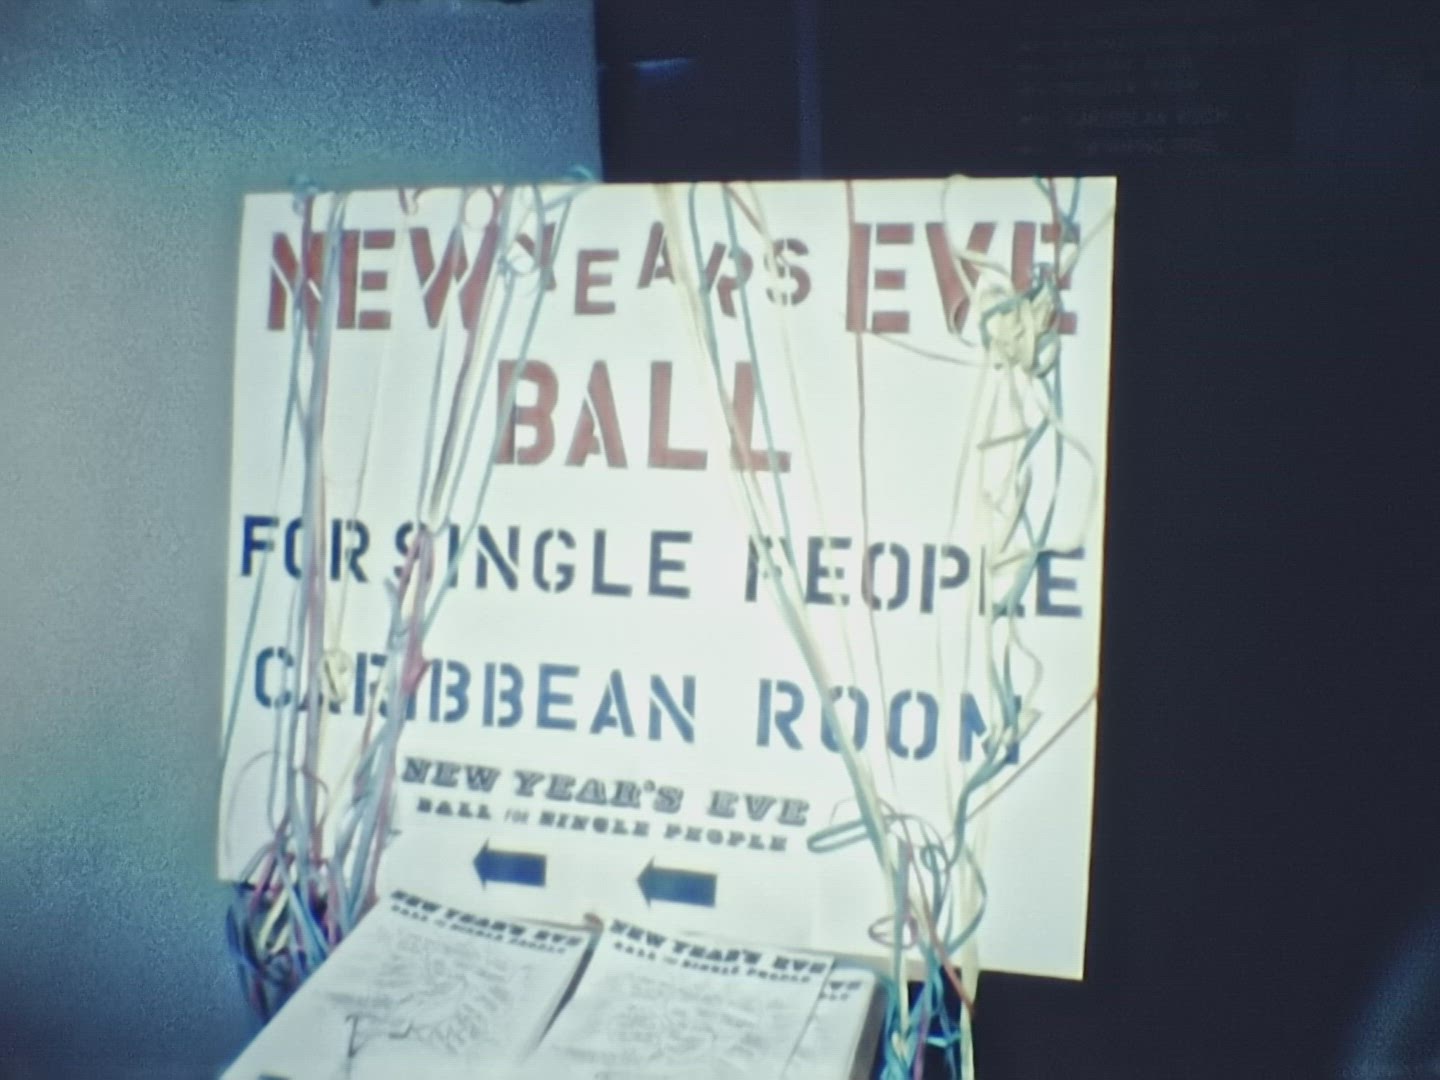 NEW YEARS EVE
BALL
FOR SINGLE PEOPLE
CARIBBEAN ROOM
NEW YEAR'S EVE
BALL FOR SINGLE PEOPLE
NEW YEAR'S EVE
BALL FOR SINGLE PEOPLE
NEW YEAR'S EVE
BALL FOR SINGLE PEOPLE